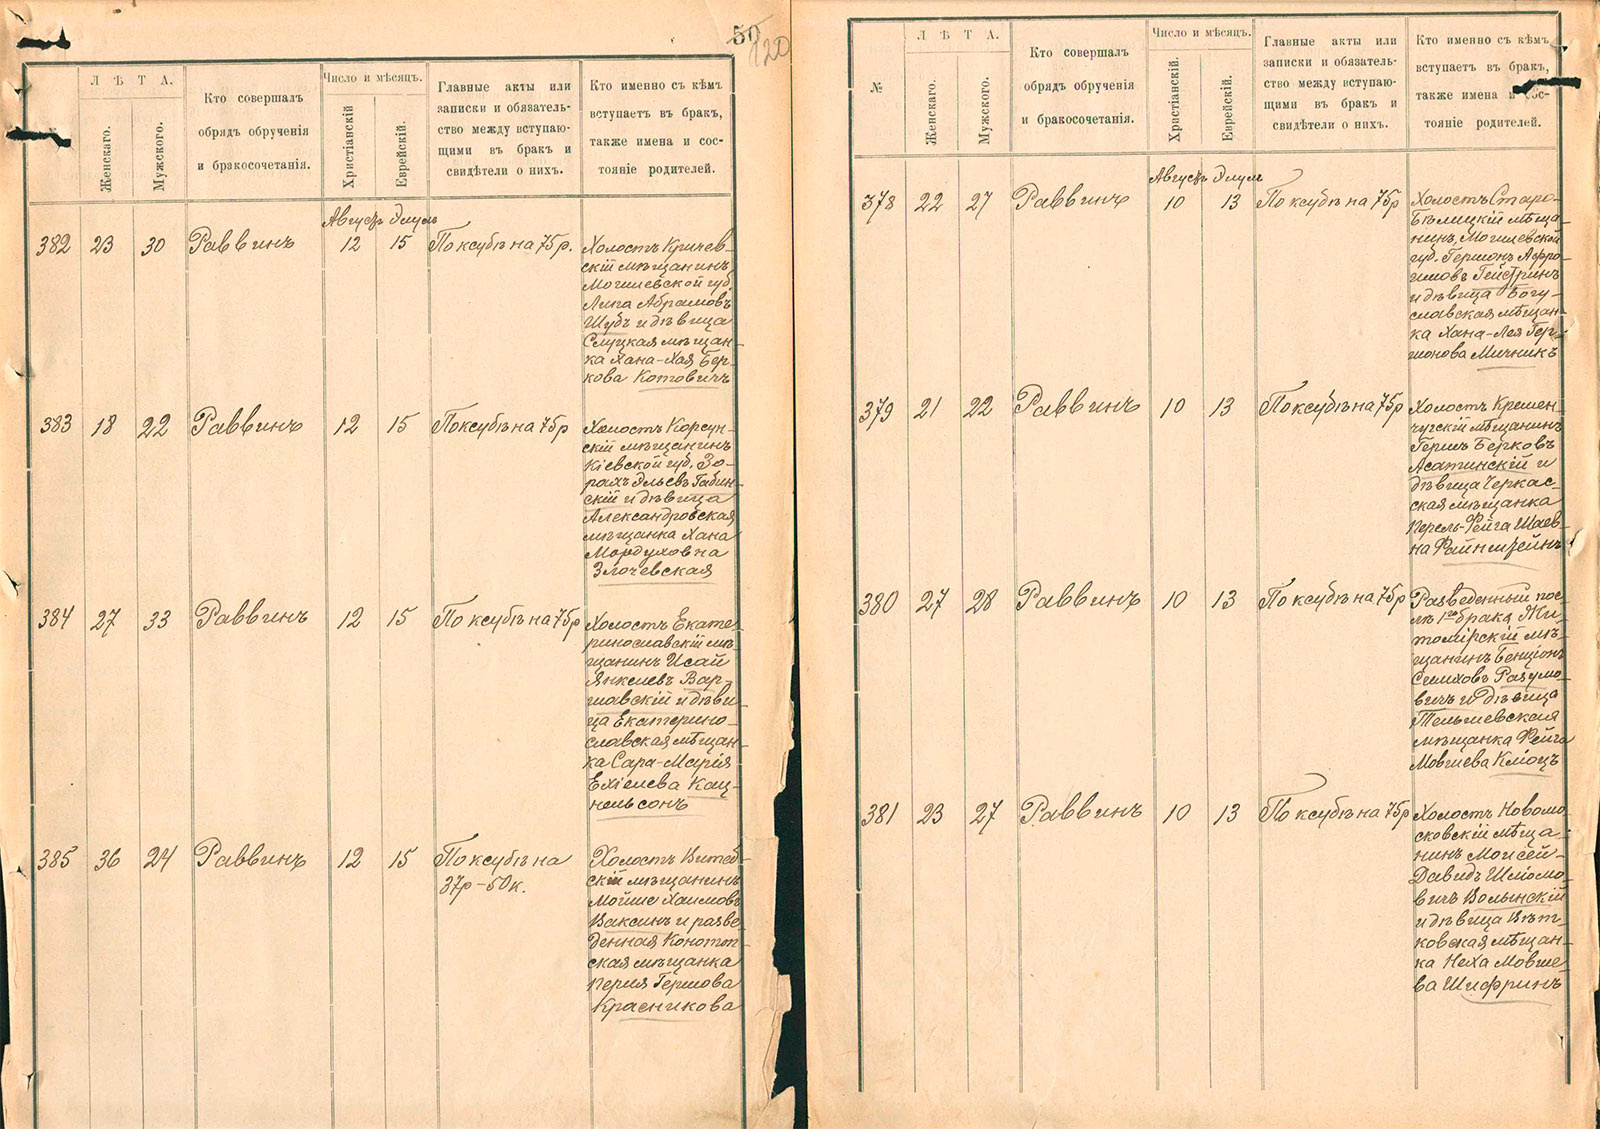 50
120
ЛѢТА.
Женскаго.
Мужского.
Кто совершалъ
обрядъ обрученія
и бракосочетанія.
Число и мѣсяцъ.
Христіанскій
Еврейскій.
Главные акты или
записки и обязатель-
ство между вступаю-
щими въ бракъ и
свидѣтели о нихъ.
Кто именно съ кѣмъ
вступаетъ въ бракъ,
также имена и сос-
тояніе родителей.
Августъ Элулъ
382 23 30 Раввинъ 12 15 По ксубѣ на 75 р.
Холостъ Кричев-
скій мѣщанинъ
Могилевской губ.
Липа Абрамовъ
Шубъ и дѣвица
Слуцкая мѣщан-
ка Хана-Хая Бер-
кова Котовичъ
383 18 22 Раввинъ 12 15 По ксубѣ на 75 р
Холостъ Корсун-
скій мѣщанинъ
Кіевской губ. Зо-
рахъ Эльевъ Габин-
скій и дѣвица
Александровская
мѣщанка Хана
Мордуховна
Злочевская
384 27 33 Раввинъ 12 15 По ксубѣ на 75 р
Холостъ Екате-
ринославскій мѣ-
щанинъ Исай
Янкелевъ Вар-
шавскій и дѣви-
ца Екатерино-
славская мѣщан-
ка Сара-Марія
Ехіелева Кац-
нельсонъ
385 36 24 Раввинъ 12 15 По ксубѣ на
37р-50к.
Холостъ Витеб-
скій мѣщанинъ
Мойше Хаимовъ
Ваксинъ и разве-
денная Конотоп-
ская мѣщанка
Перия Гершова
Красникова
№
ЛѢТА.
Женскаго.
Мужского.
Кто совершалъ
обрядъ обрученія
и бракосочетанія.
Число и мѣсяцъ.
Христіанскій.
Еврейскій.
Главные акты или
записки и обязатель-
ство между вступаю-
щими въ бракъ и
свидѣтели о нихъ.
Кто именно съ кѣмъ
вступаетъ въ бракъ,
также имена и сос-
тояніе родителей.
Августъ Элулъ
378 22 27 Раввинъ 10 13 По ксубѣ на 75р
Холостъ Старо-
Бѣлицкій мѣща-
нинъ, Могилевской
губ. Гершонъ Афро-
имовъ Гейстринъ
и дѣвица Богу-
славская мѣщан-
ка Хана-Лея Гер-
шонова Мичникъ
379 21 22 Раввинъ 10 13 По ксубѣ на 75р
Холостъ Кремен-
чугскій мѣщанинъ
Гершъ Берковъ
Асатинскій и
дѣвица Черкас-
ская мѣщанка
Перель-Фейга Шаев-
на Файнштейнъ
380 27 28 Раввинъ 10 13 По ксубѣ на 75р
Разведенный пос-
лѣ 1го брака, Жи-
томірскій мѣ-
щанинъ Бенціонъ
Симховъ Разумо-
вичъ и дѣвица
Тельшевская
мѣщанка Фейга
Мовшева Клюцъ
381 23 27 Раввинъ 10 13 По ксубѣ на 75р
Холостъ Новомо-
сковскій мѣща-
нинъ Моисей-
Давидъ Шліомо-
вичъ Волынскій
и дѣвица Вѣт-
ковская мѣщан-
ка Неха Мовше-
ва Шифринъ